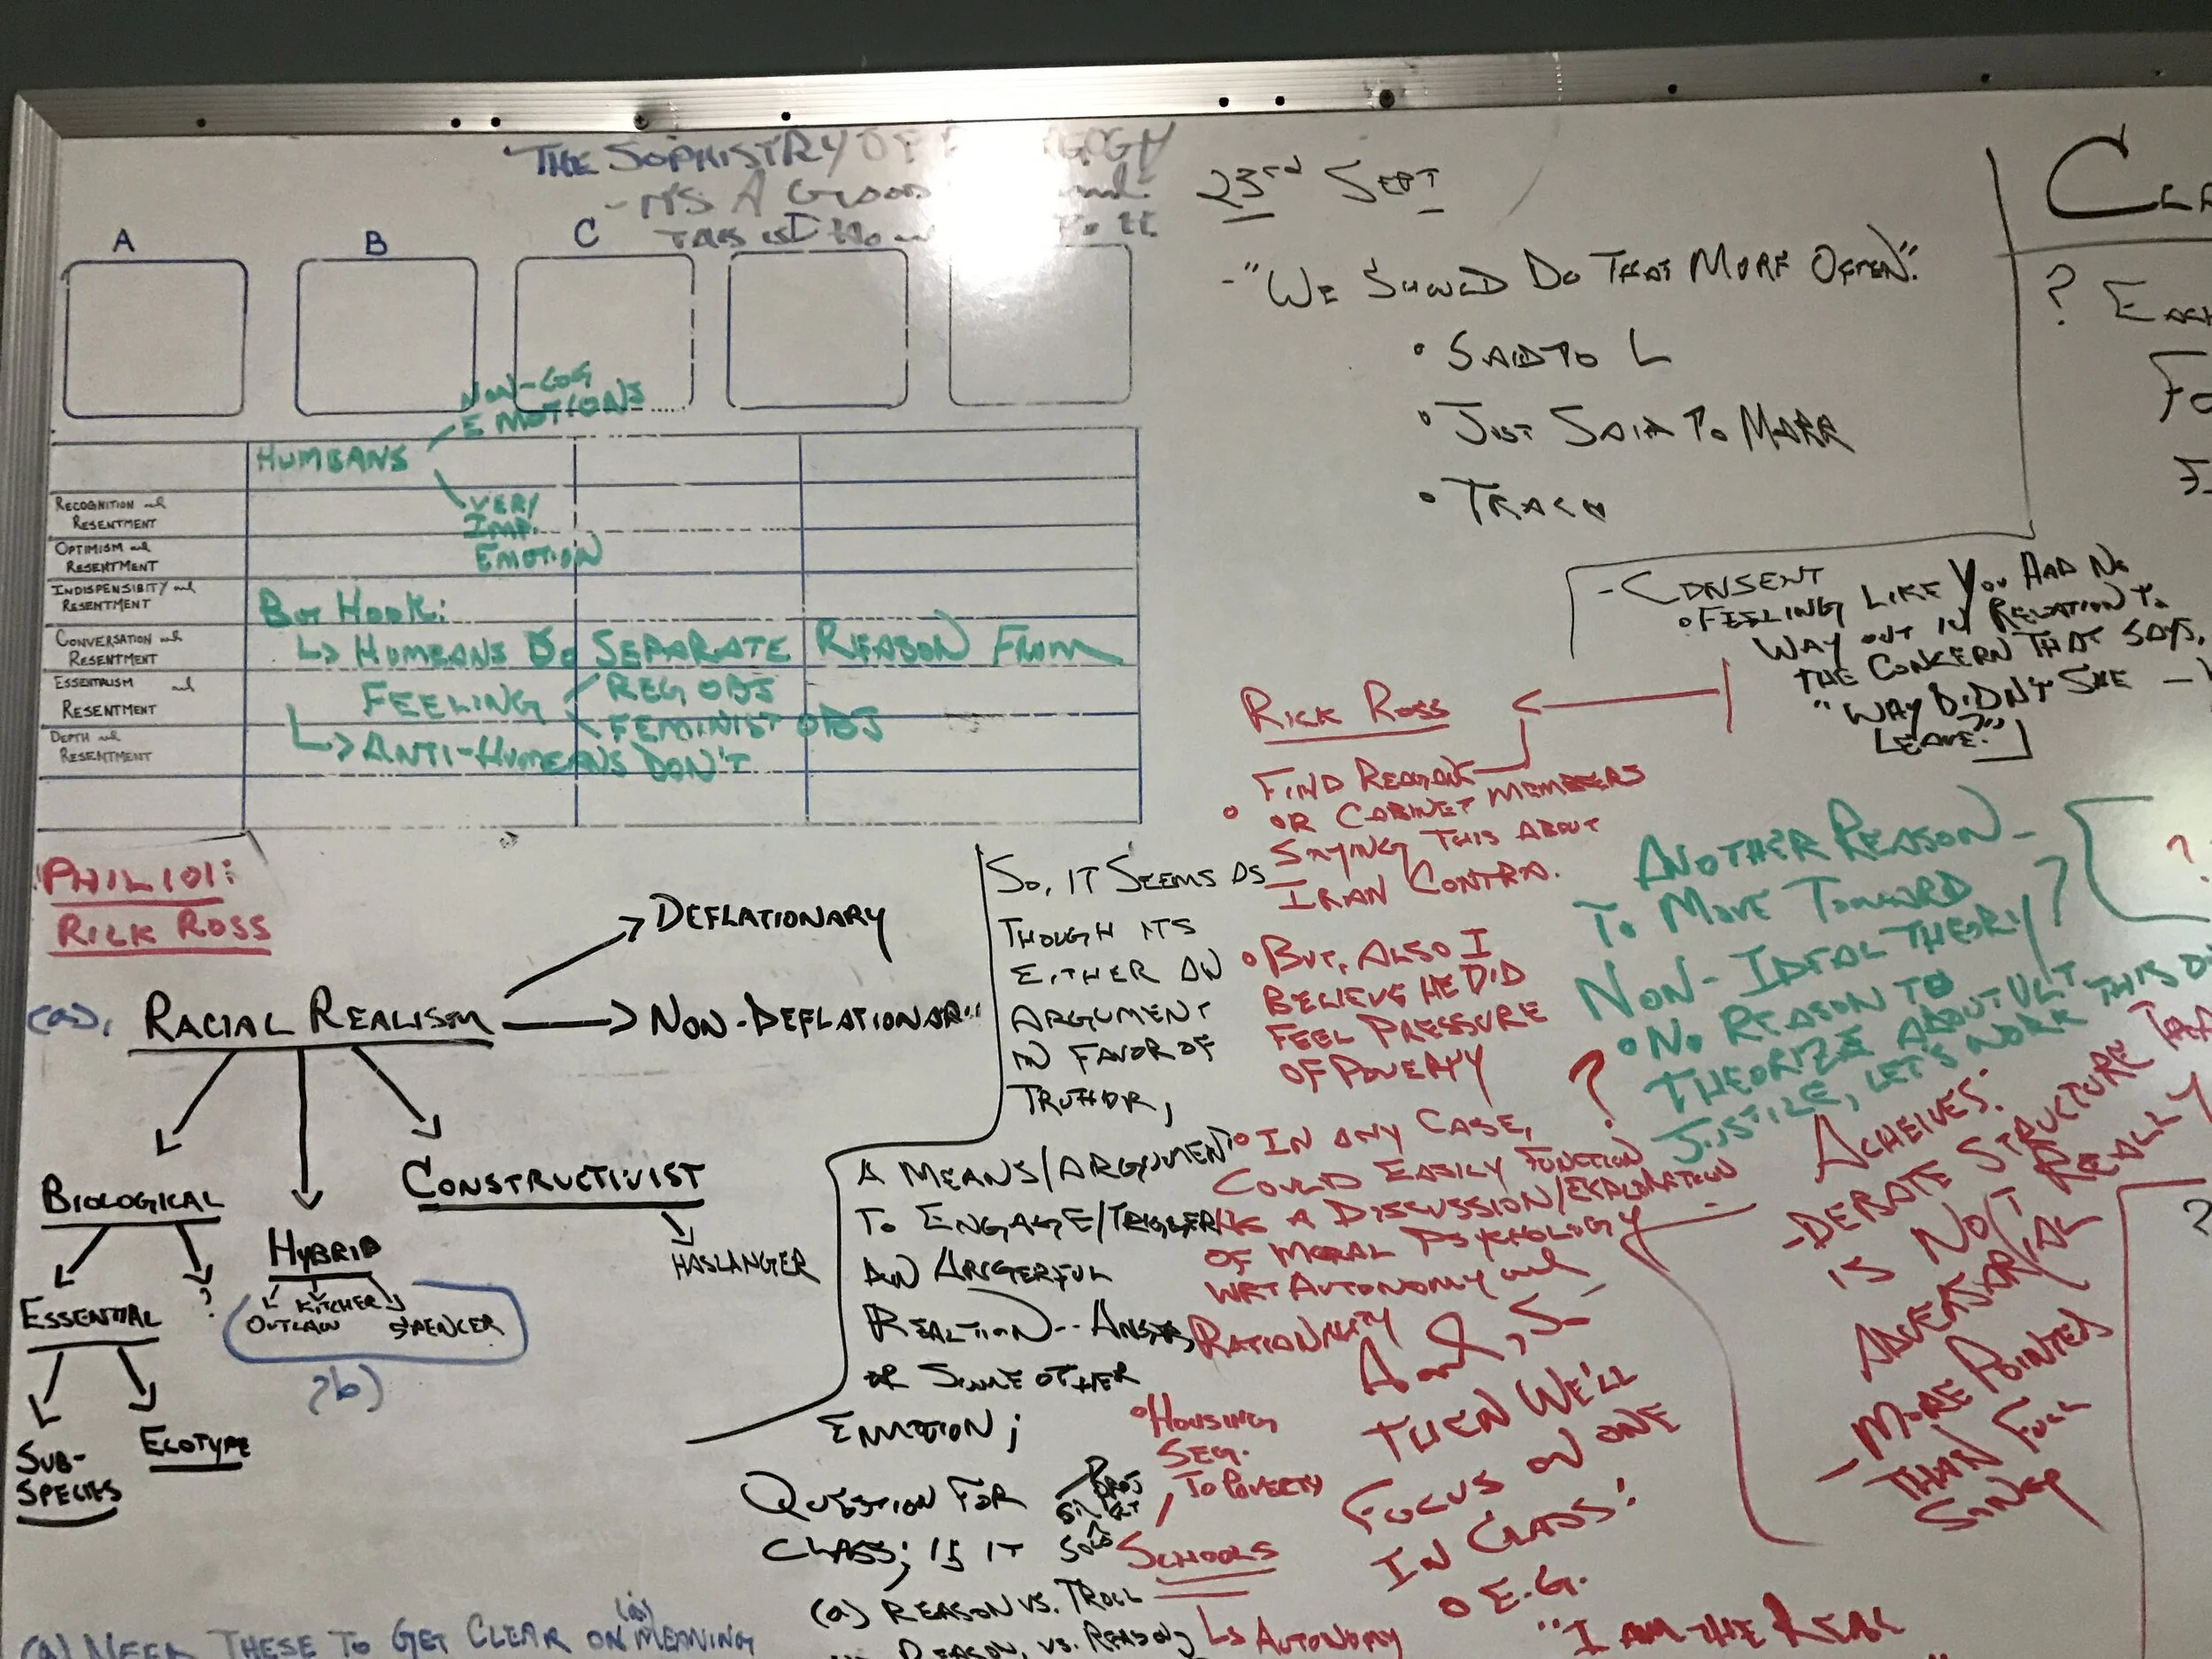 "THE SOPHISTRY OF
- ITS A GOOD
THIS IS
A
B
C
NON-COG
EMOTIONS
HUMEANS
VERY
IMP.
EMOTION
RECOGNITION and
RESENTMENT
OPTIMISM and
RESENTMENT
INDISPENSIBITY and
RESENTMENT
CONVERSATION and
RESENTMENT
ESSENTIALISM and
RESENTMENT
DEPTH and
RESENTMENT
BUT HOOK:
↳ HUMEANS DO SEPARATE REASON FROM
FEELING
REG OBJ
FEMINIST OBJ
↳ ANTI-HUMEANS DON'T
PHIL 101:
RICK ROSS
(a).
RACIAL REALISM
DEFLATIONARY
NON-DEFLATIONARY
BIOLOGICAL
HYBRID
CONSTRUCTIVIST
HASLANGER
ESSENTIAL
?
OUTLAW
KITCHER
SPENCER
?b)
SUB-
SPECIES
ECOTYPE
(a) NEED THESE TO GET CLEAR ON (a) MEANING
SO, IT SEEMS AS
THOUGH ITS
EITHER AN
ARGUMENT
IN FAVOR OF
TRUTH OR,
A MEANS/ARGUMENT
TO ENGAGE/TRIGGER
AN ANGERFUL
REACTION--ANGER,
OR SOME OTHER
EMOTION;
QUESTION FOR
CLASS; IS IT
(a) REASON VS. TROLL
REASON, VS. REASON;
23rd SEPT
- "WE SHOULD DO THAT MORE OFTEN."
• SAID TO L
• JUST SAID TO MARR
• TRACK
- CONSENT
• FEELING LIKE YOU HAD NO
WAY OUT IN RELATION TO
THE CONCERN THAT SAYS,
"WAY DIDN'T SHE -
LEAVE?"]
RICK ROSS
• FIND REAGAN
OR CABINET MEMBERS
SAYING THIS ABOUT
IRAN CONTRA.
• BUT, ALSO I
BELIEVE HE DID
FEEL PRESSURE
OF POVERTY
• IN ANY CASE,
COULD EASILY FUNCTION
AS A DISCUSSION/EXPLORATION
OF MORAL PSYCHOLOGY
WRT AUTONOMY and
RATIONALITY
• HOUSING
SEG.
TO POVERTY
SCHOOLS
↳ AUTONOMY
THEN WE'LL
FOCUS ON ONE
IN CLASS:
• E.G.
"I AM THE REAL
ANOTHER REASON -
TO MOVE TOWARD
NON-IDEAL THEORY?
• NO REASON TO
THEORIZE ABOUT ULT
JUSTICE, LET'S WORK THIS
?
ACHEIVES:
- DEBATE STRUCTURE THAT
IS NOT REALLY
ADVERSARIAL
- MORE POINTED
THAN FULL
SONG
?
?